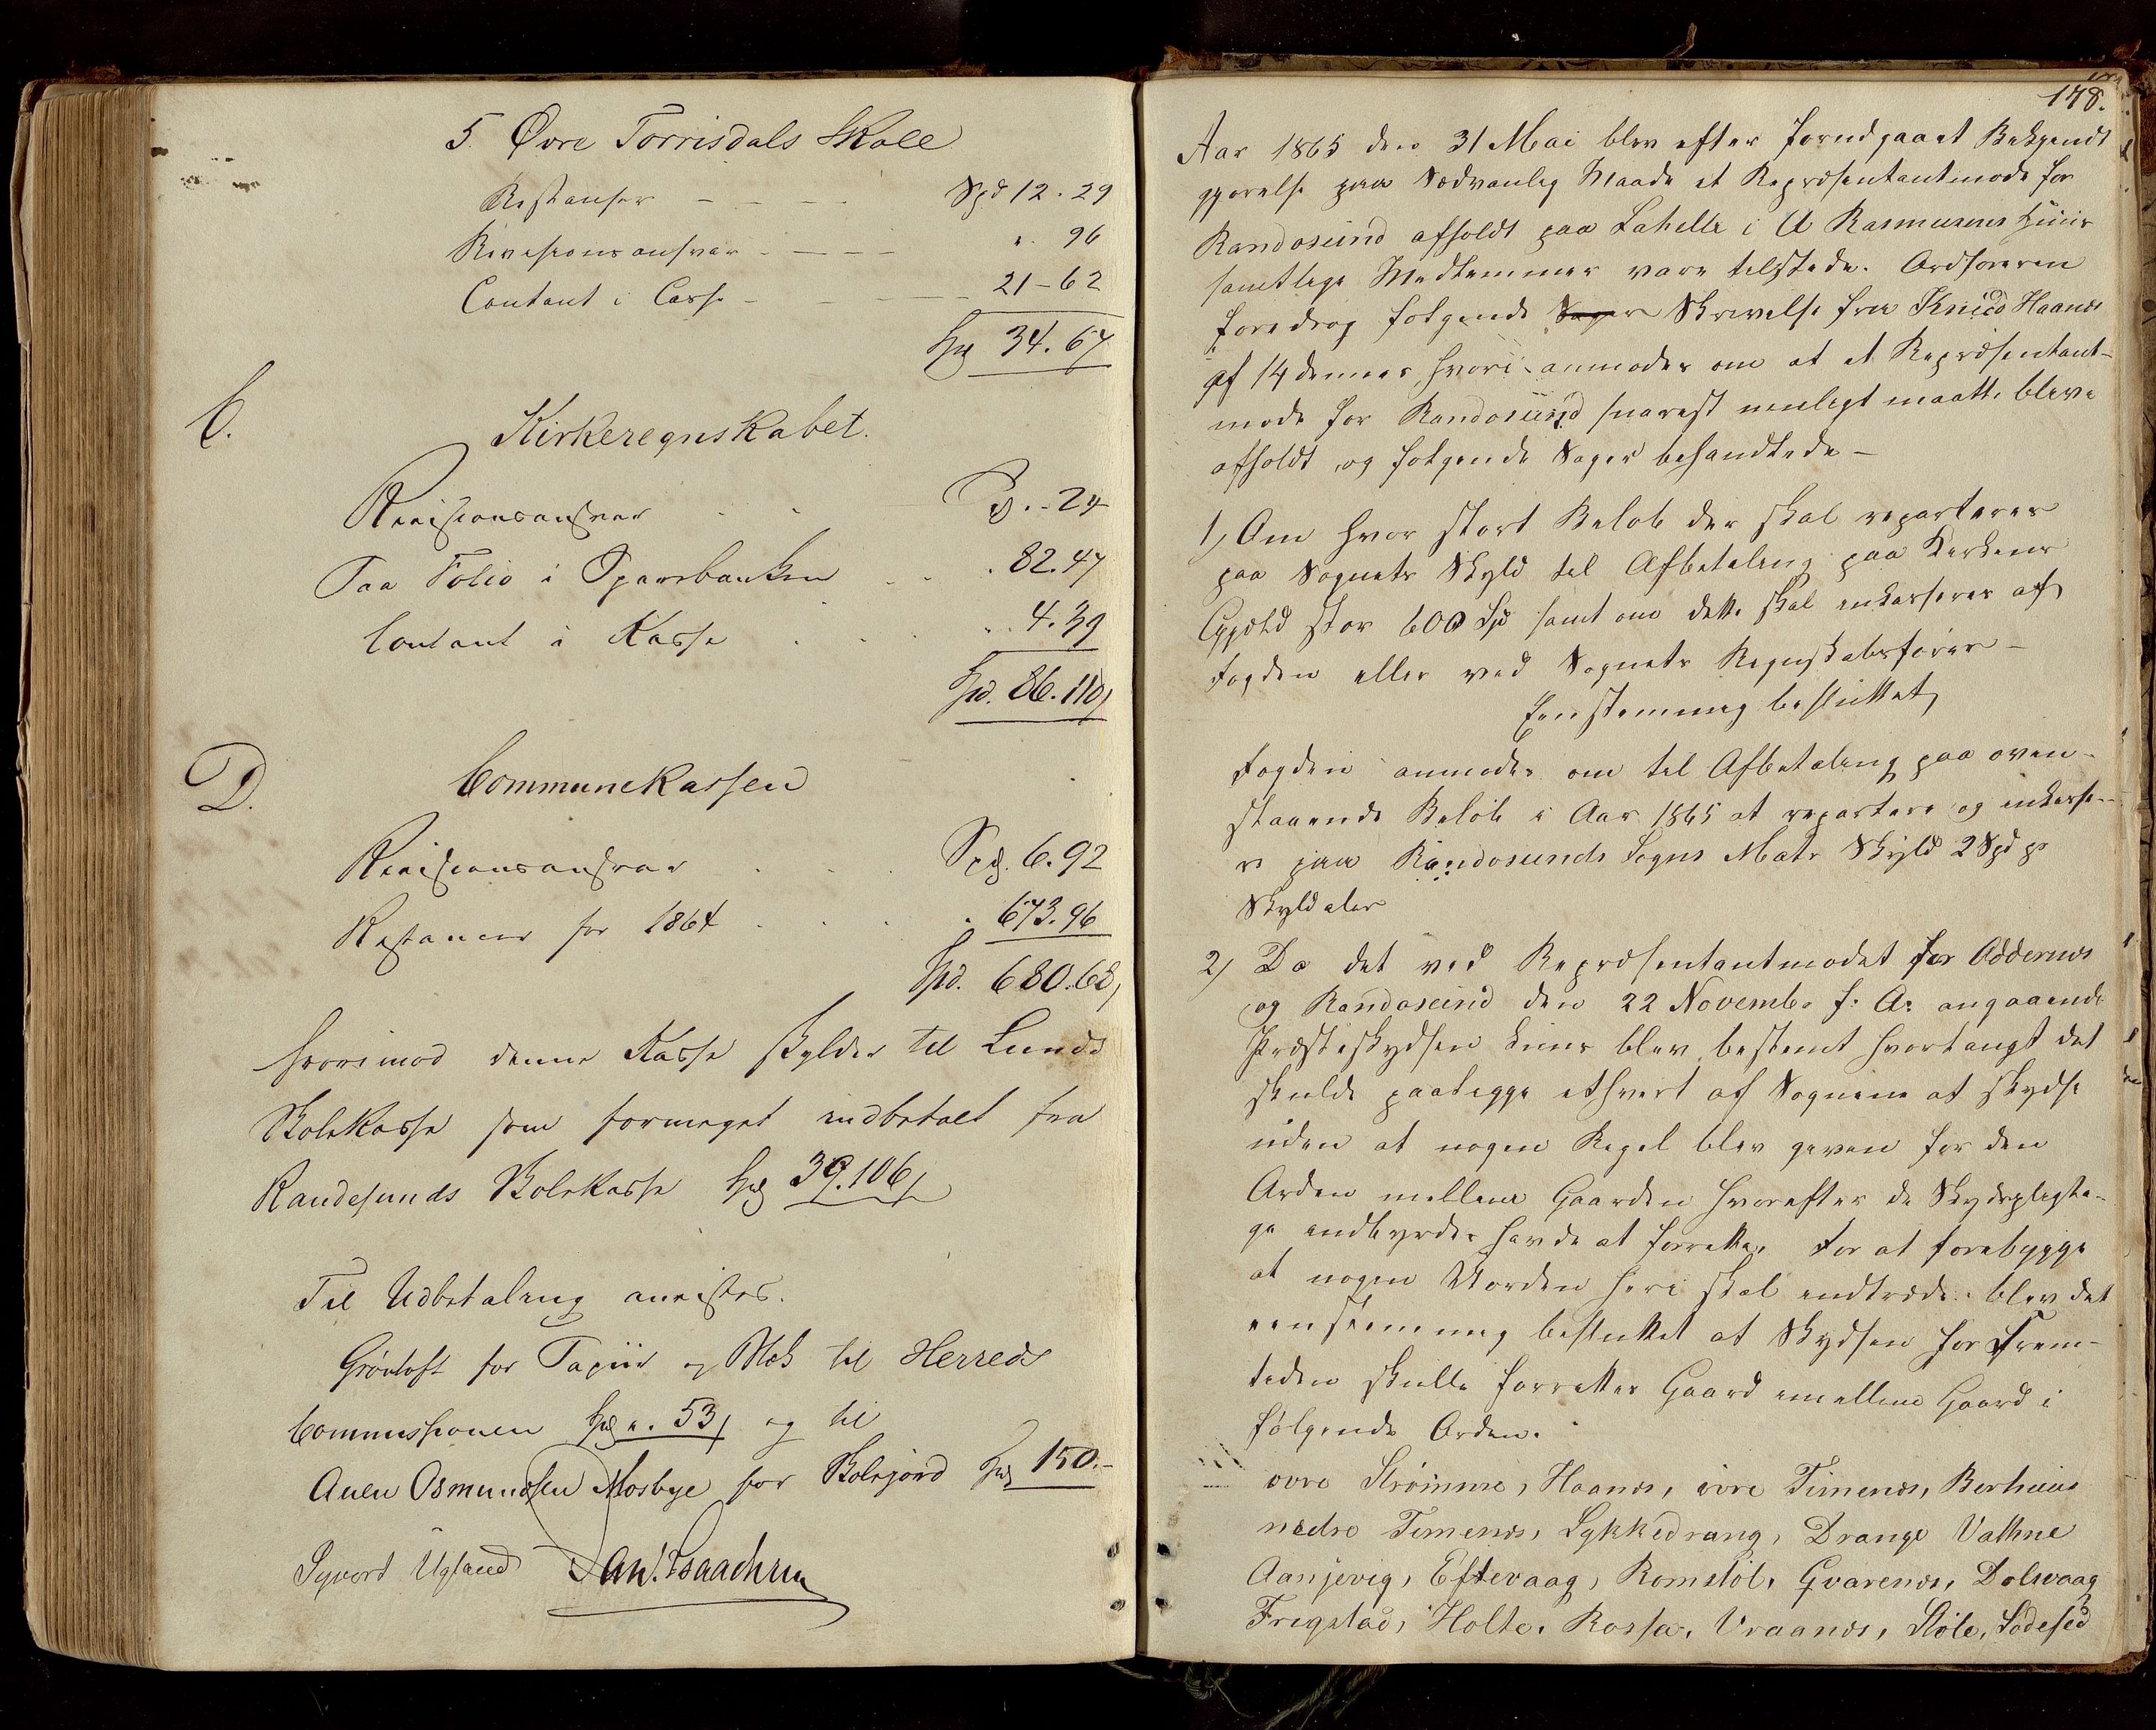 5. Øvre Torrisdals Skole
Restanser - - - - Spd 12. 29
Revisionsansvar - - - - ". 96
Contant i Casse - - - - 21-62
Spd 34. 67
C. Kirkeregnskabet.
Revisionsansvar . . Spd. " - 24
Paa Folio i Sparebanken . . . 82. 47
Contant i Kasse . . . . 4. 39
Spd. 86. 110,
D. Communekassen
Revisionsansvar . . . Spd. 6. 92
Restancer for 1864 . . . . 673. 96
Spd. 680. 68,
hvorimod denne Kasse skylder til Lunds
Skolekasse som formeget indbetalt fra
Randesunds Skolekasse Spd 39. 106,
Til Udbetaling anvistes.
Grönloft for Papiir og Blek til Herreds
Commissionen Spd ". 53, og til
Anen Osmundsen Mosbye for Skolejord Spd 150.-
Syvert Ugland Dan. Isaachsen
178.
Aar 1865 den 31 Mai blev efter forudgaaet Bekjendt
gjørelse paa Sædvanlig Maade et Repræsentantmøde for
Randøsund afholdt paa Lahelle i A Rasmusens Huus
samtlige Medlemmer vare tilstede. Ordføreren
foredrog følgende Sager Skrivelse fra Knud Haanæs
af 14 dennes, hvori anmodes om at et Repræsentant-
møde for Randøsund snarest muligt maatte blive
afholdt, og følgende Sager behandlede -
1, Om hvor stort Beløb der skal reparteres
paa Sognets Skyld til Afbetaling paa Kirkens
Gjæld stor 600 Spd samt om dette skal inkasseres af
Fogden eller ved Sognets Regnskabsfører -
Eenstemmig besluttet,
Fogden anmodes om til Afbetaling paa oven-
staaende Beløb i Aar 1865 at repartere og inkasse-
re paa Randøsunds Sogns Matr Skyld 2 Spd pr
Skylddaler
2, Da det ved Repræsentantmødet for Oddernæs
og Randøsund den 22 Novembr f: A: angaaende
Præsteskydsen kuns blev bestemt hvorlangt det
skulde paalegge ethvert af Sognene at skydse
uden at nogen Regel blev given for den
Orden mellem Gaarden hvorefter de Skydspligti-
ge indbyrdes havde at forrette. For at forebygge
at nogen Uorden heri skal indtræde blev det
eenstemmig besluttet at Skydsen for Frem-
tiden skulle forrettes Gaard imellem Gaard i
følgende Orden.
øvre Strömme, Haanæs, øvre Timenæs, Berhuus
nedre Timenæs, Lykkedrang, Drange Vathne
Aanjevig, Eftevaag, Romstöl, Qvarenæs, Dolsvaag
Frigstad, Holte, Rossø, Vraanæs, Støle, Sodefied